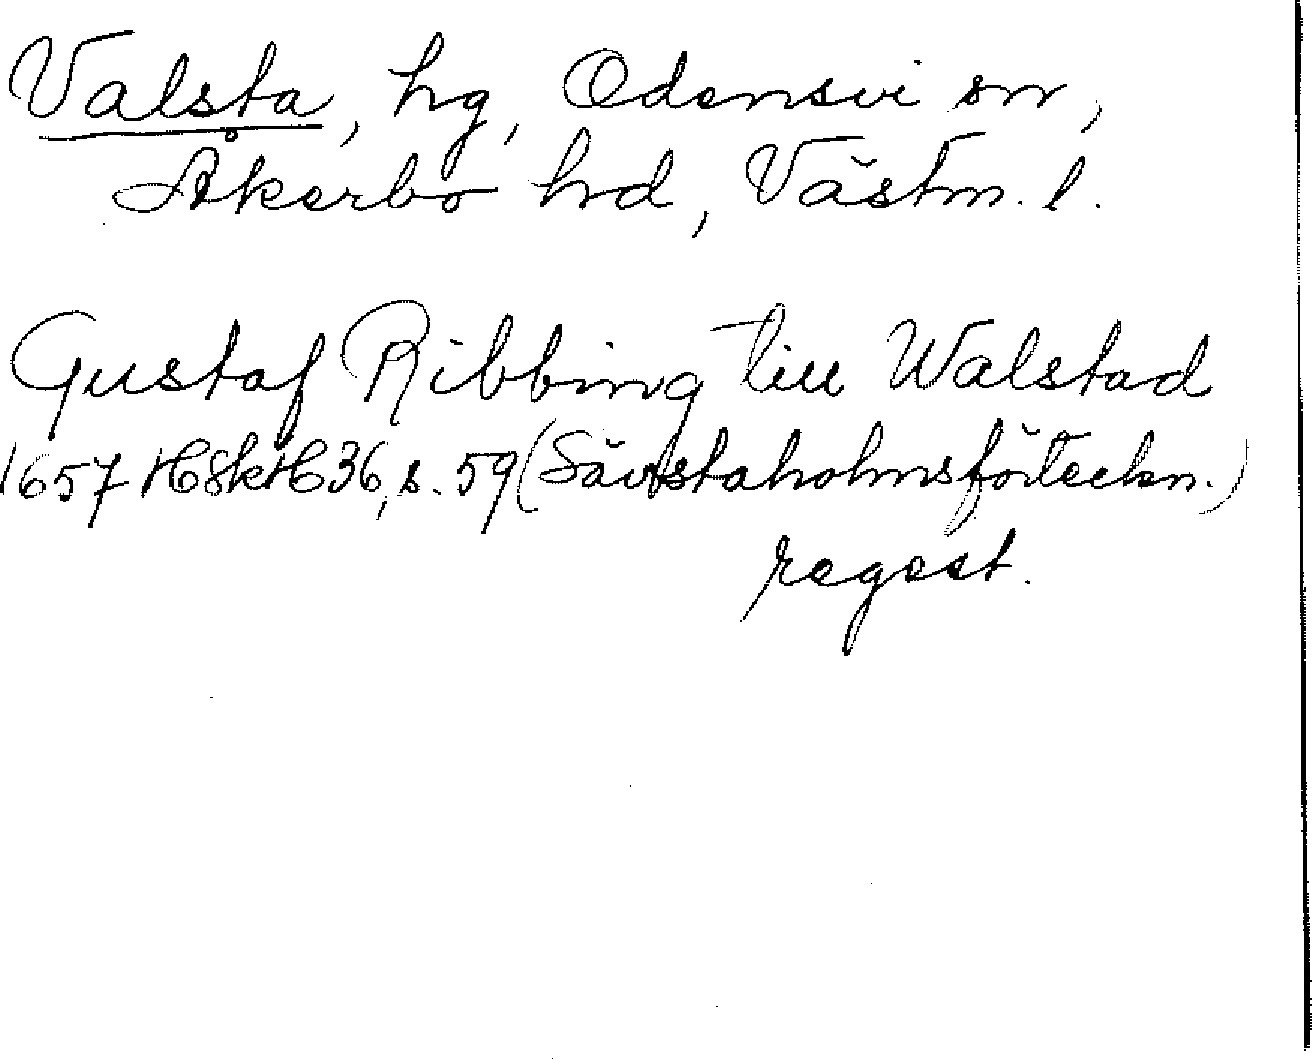 Valsta, hg, Odensvi sn,
Åkerbo hd, Västm. l.
Gustaf Ribbing till Walstad
1657 HSkH 36, s. 59 (Sävstaholmsförteckn.)
regest.